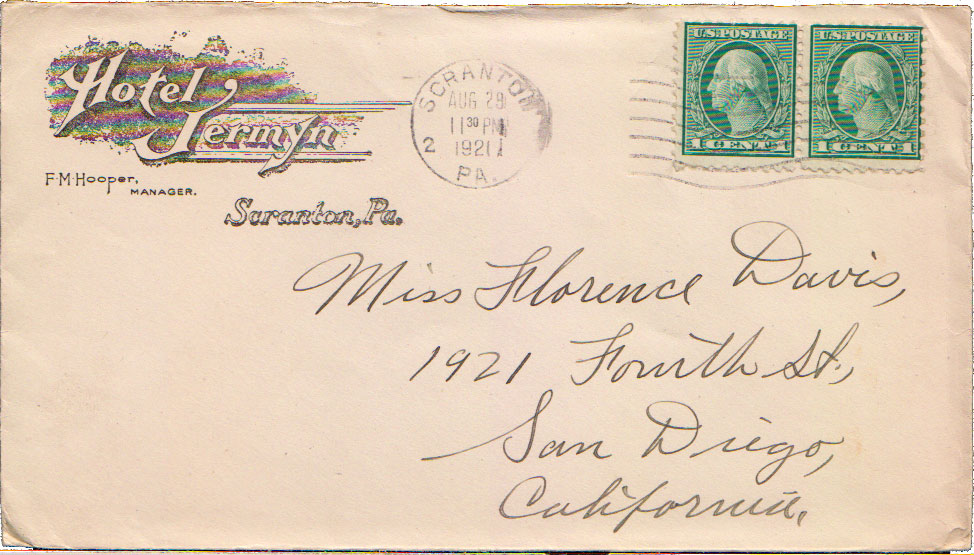 Hotel
Jermyn
F·M·Hooper,
MANAGER.
Scranton, Pa.
SCRANTON
AUG 29
11 30 PM
1921
2
PA.
U.S. POSTAGE
1 CENT 1
U.S. POSTAGE
1 CENT 1
Miss Florence Davis,
1921 Fourth St.,
San Diego,
California.